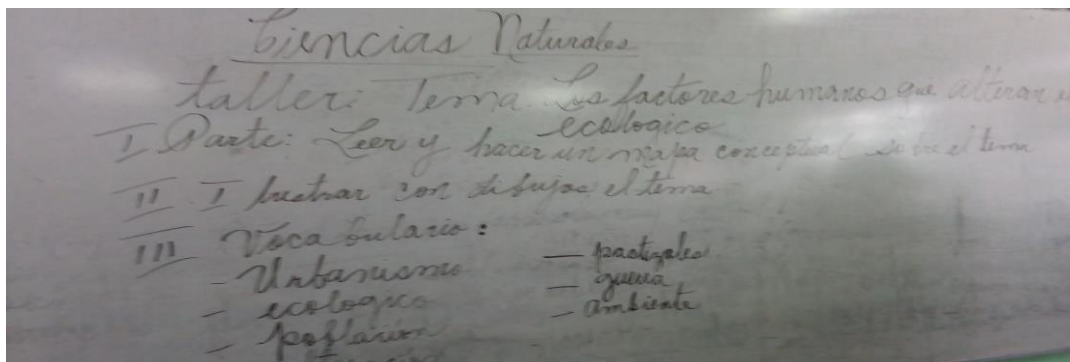 Ciencias Naturales
taller: Tema Los factores humanos que alteran
ecologico
I Parte: Leer y hacer un mapa conceptual sobre el tema
II Ilustrar con dibujos el tema
III Vocabulario:
- Urbanismo
- ecologico
- poblacion
- pastizales
- guerra
- ambiente